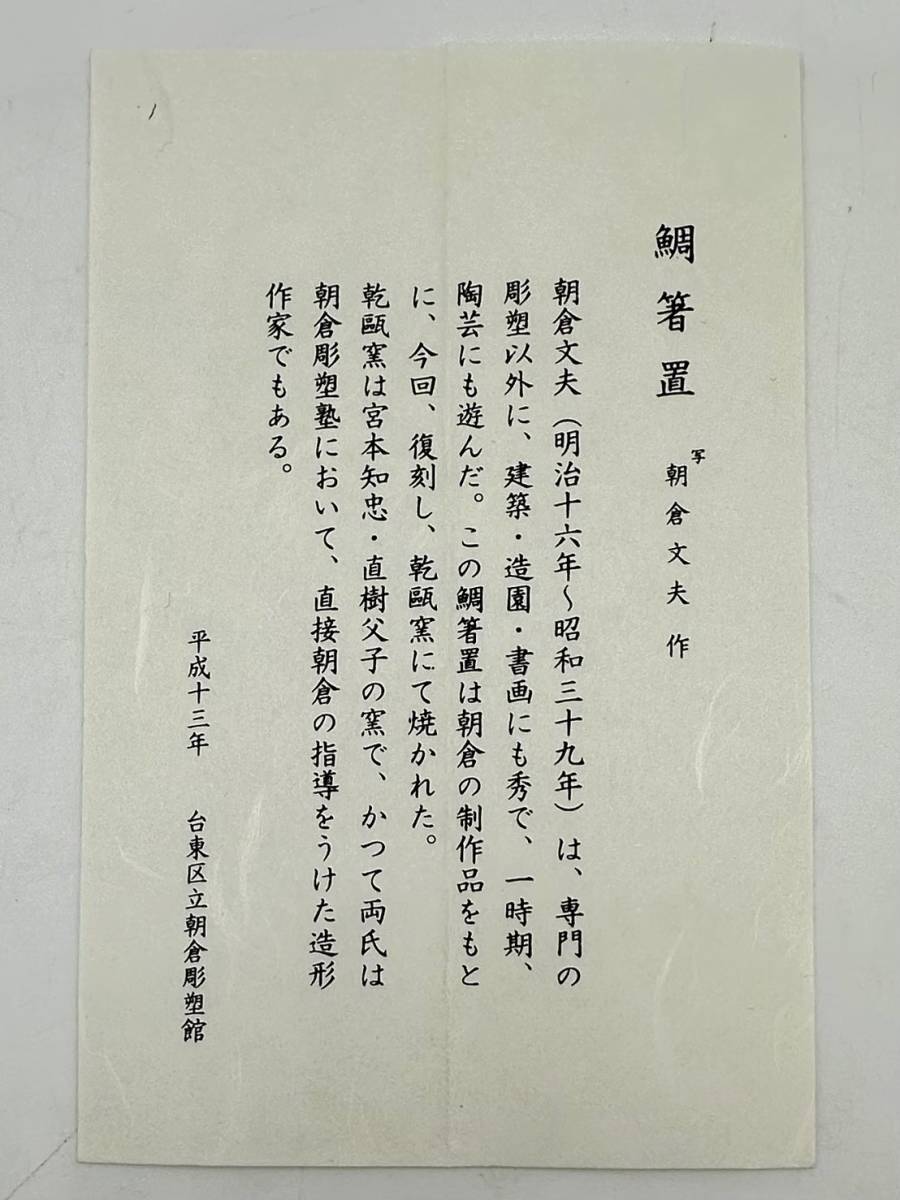 鯛箸置 写 朝倉文夫作
朝倉文夫(明治十六年～昭和三十九年)は、専門の
彫塑以外に、建築・造園・書画にも秀で、一時期、
陶芸にも遊んだ。この鯛箸置は朝倉の制作品をもと
に、今回、復刻し、乾甌窯にて焼かれた。
乾甌窯は宮本知忠・直樹父子の窯で、かつて両氏は
朝倉彫塑塾において、直接朝倉の指導をうけた造形
作家でもある。
平成十三年 台東区立朝倉彫塑館